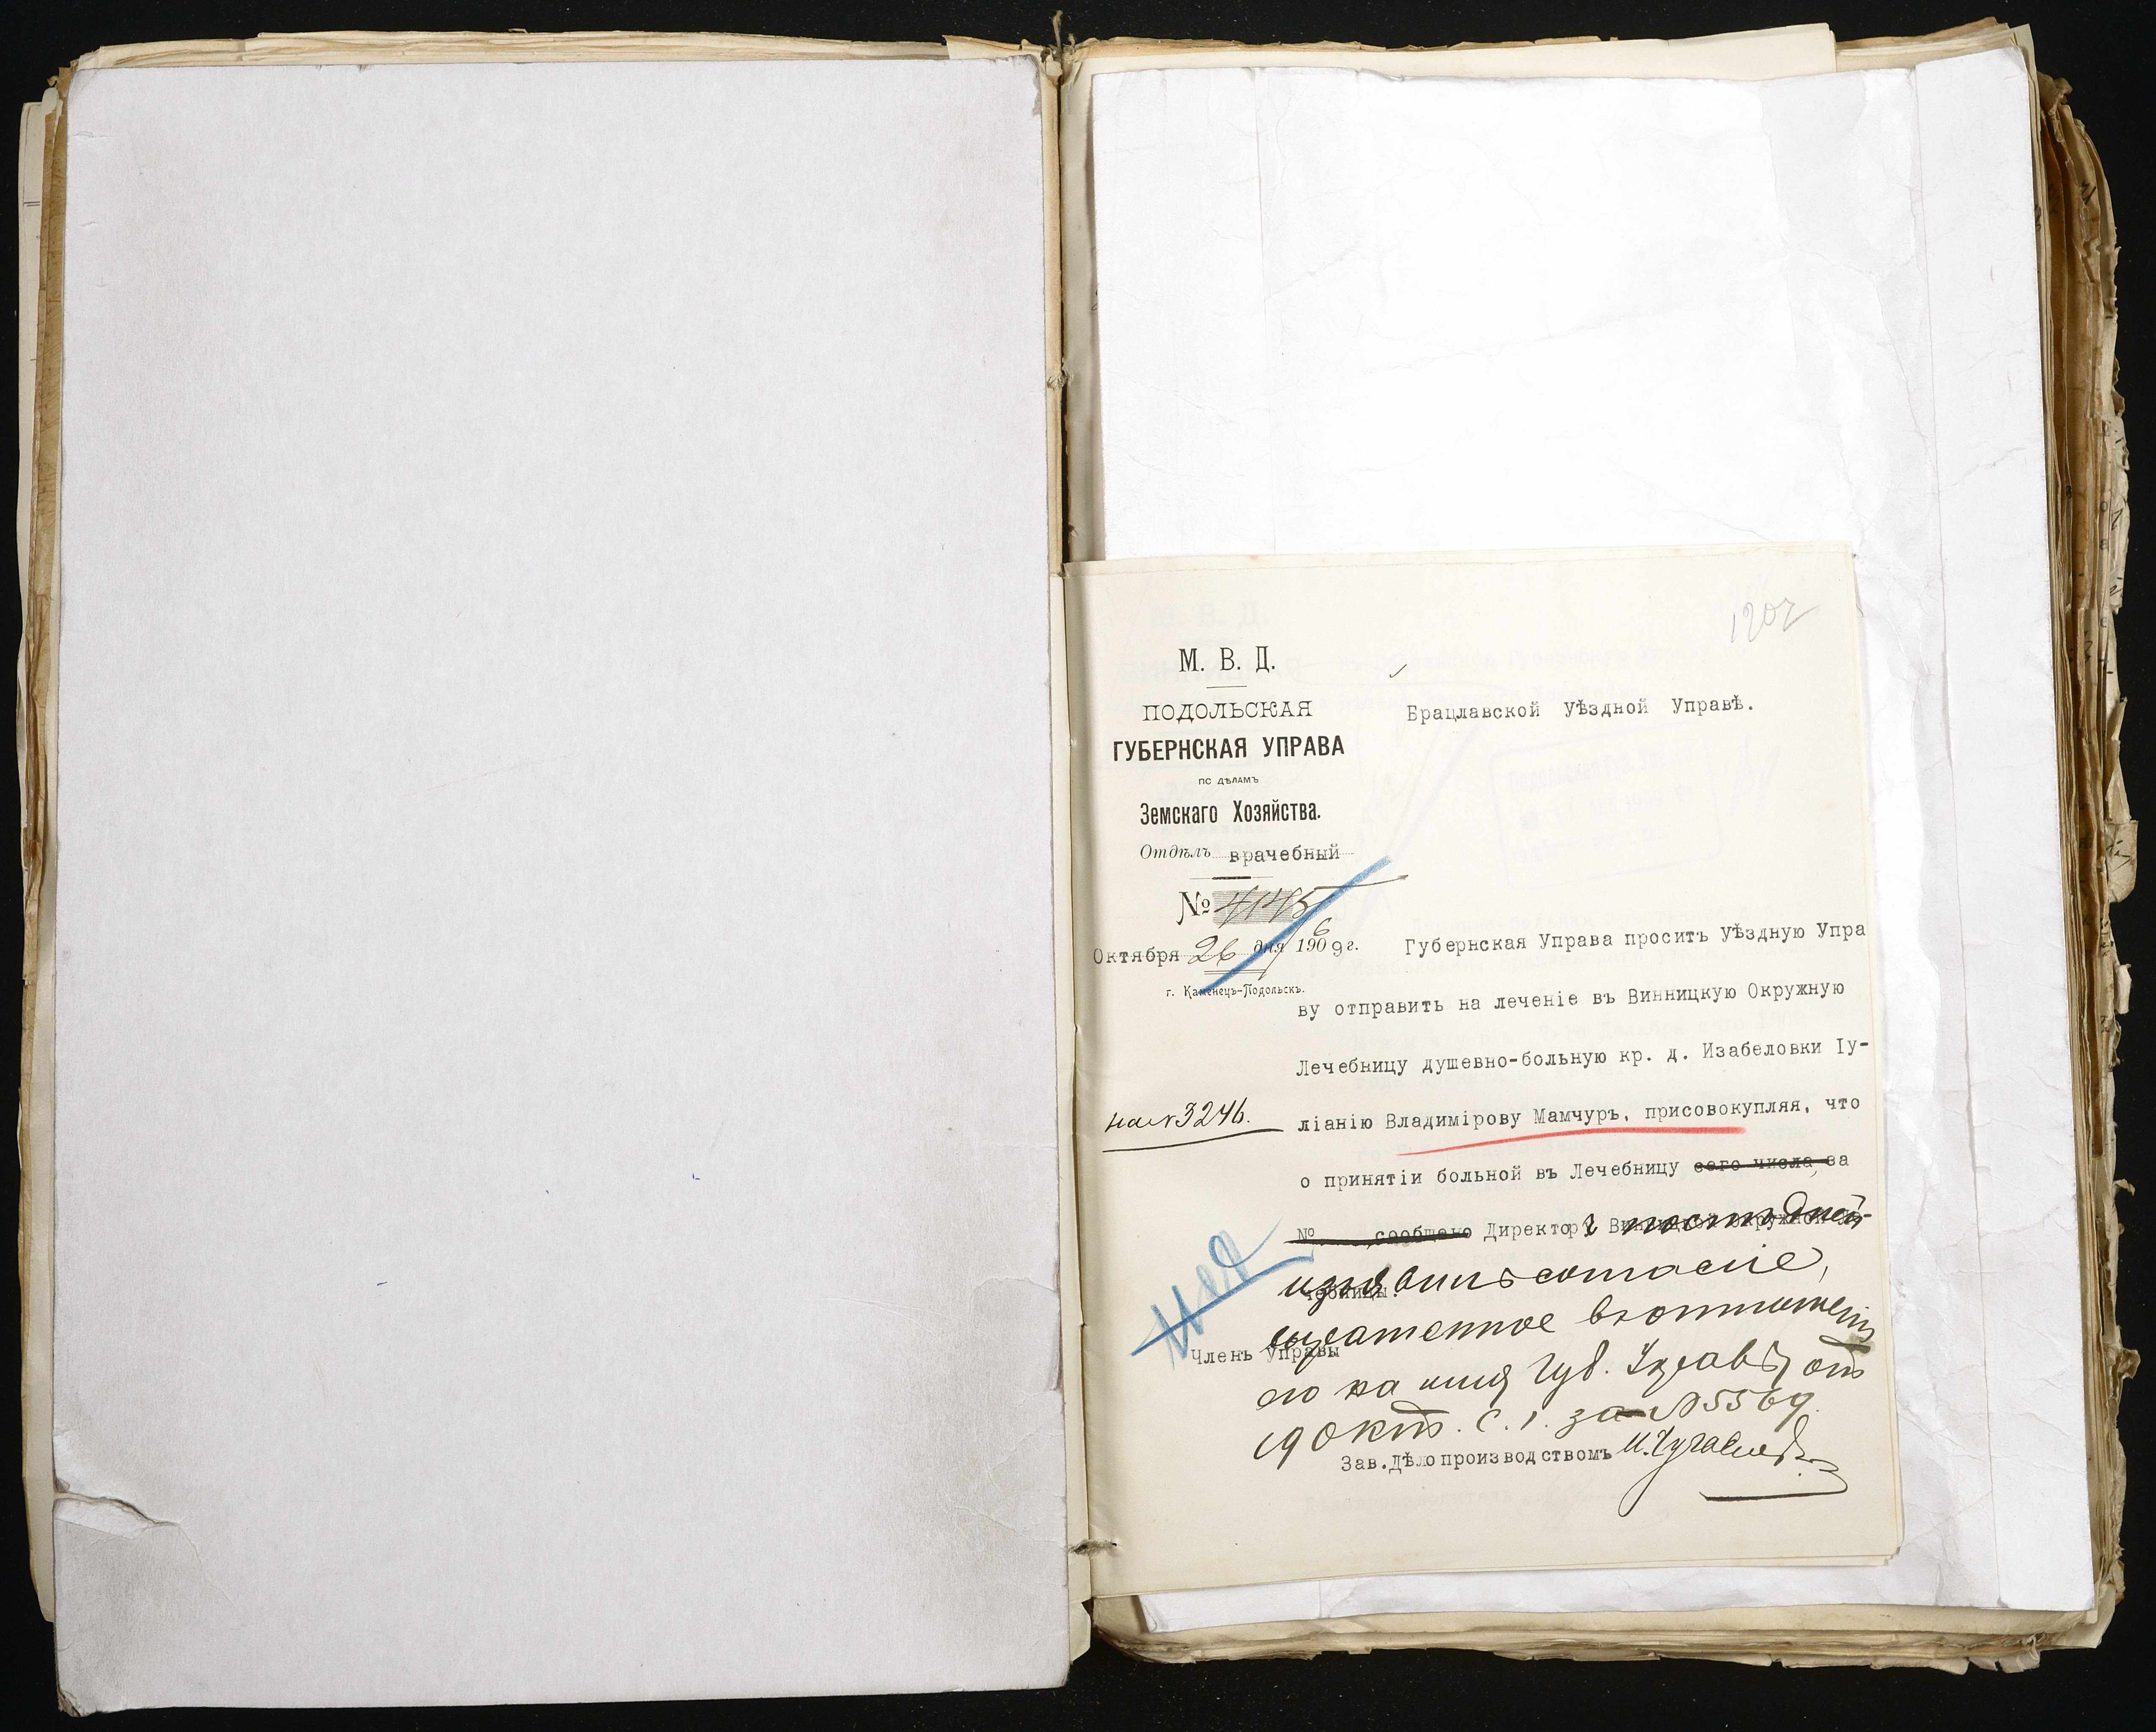 1202
М. В. Д.
ПОДОЛЬСКАЯ
ГУБЕРНСКАЯ УПРАВА
ПО ДѢЛАМЪ
Земскаго Хозяйства.
Отдѣлъ врачебный
№ 4145
Октября 26 дня 1909 г.
г. Каменецъ-Подольскъ.
Брацлавской Уѣздной Управѣ.
Губернская Управа проситъ Уѣздную Упра
ву отправить на леченіе въ Винницкую Окружную
Лечебницу душевно-больную кр. д. Изабеловки Іу-
на № 3246.
ліанію Владимірову Мамчуръ, присовокупляя, что
о принятіи больной въ Лечебницу сего числа за
№ сообщено Директору Винницкой Окружной Ле-
чебницы.
изъявилъ согласіе,
выраженное въ отношеніи
Членъ Управы
его на имя Губ. Управы отъ
19 Окт. с. г. за № 5569.
Зав. Дѣлопроизводствомъ